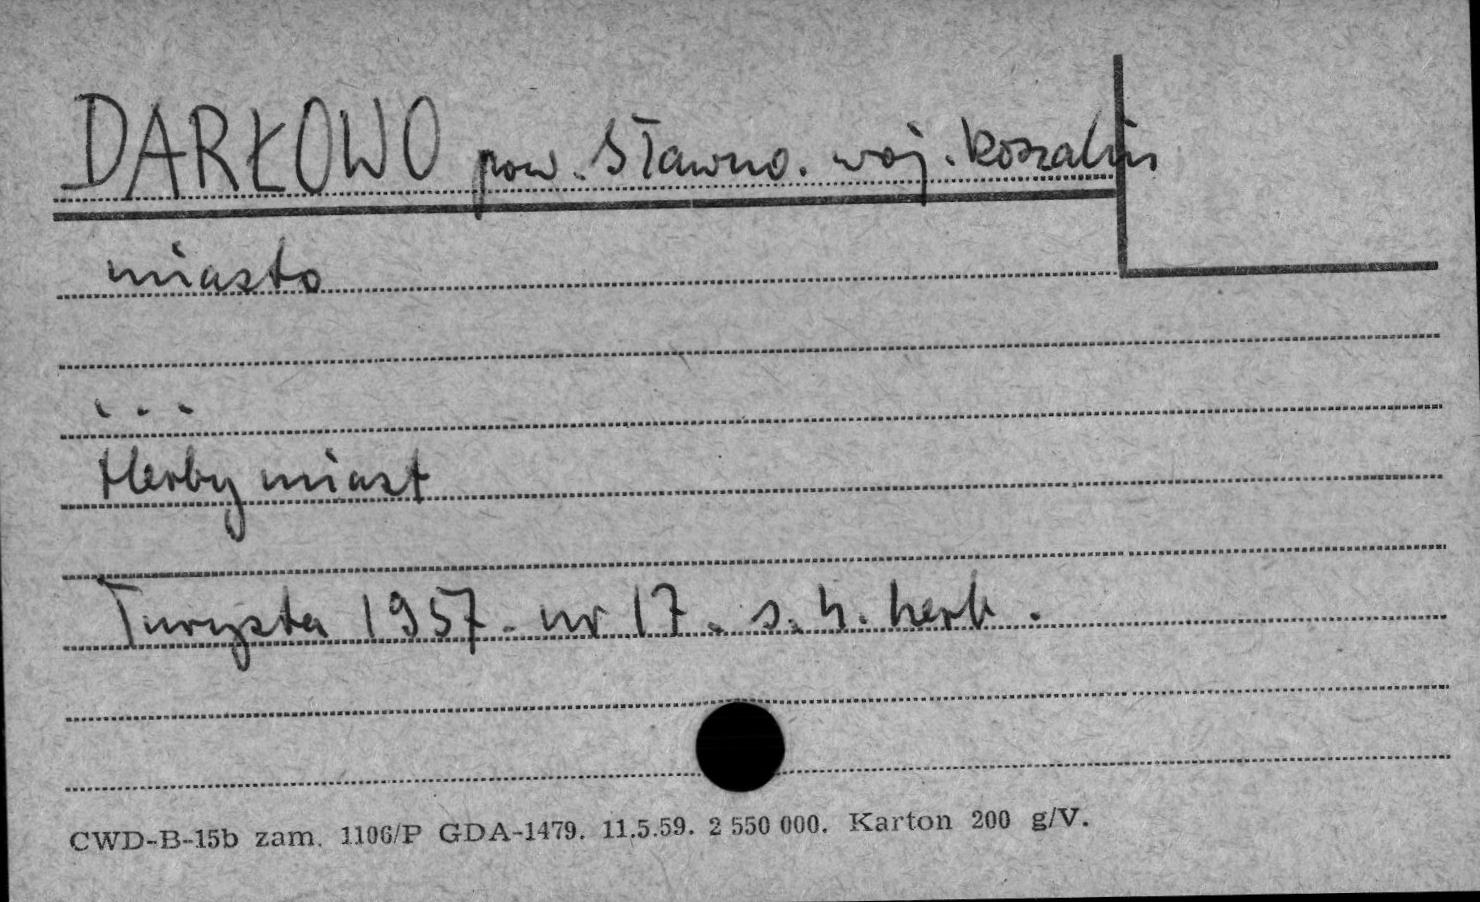 DARŁOWO pow. Sławno. woj. koszalin
miasto
...
Herby miast
Turysta 1957. nr 17. s. 4. herb.
CWD-B-15b zam. 1106/P GDA-1479. 11.5.59. 2 550 000. Karton 200 g/V.